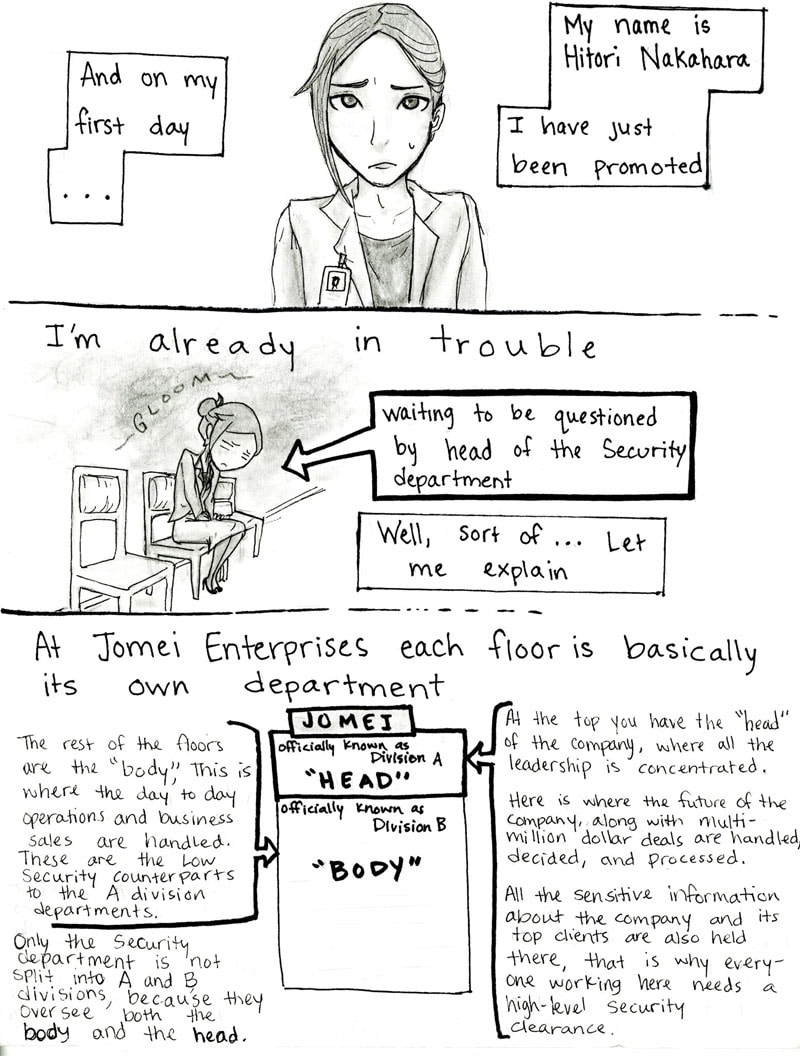 My name is
Hitori Nakahara
I have just
been promoted
And on my
first day
...
I'm already in trouble
GLOOM~
waiting to be questioned
by head of the Security
department
Well, sort of ... Let
me explain
At Jomei Enterprises each floor is basically
its own department
JOMEI
officially known as
Division A
"HEAD"
officially known as
Division B
"BODY"
At the top you have the "head"
of the company, where all the
leadership is concentrated.
Here is where the future of the
company, along with multi-
million dollar deals are handled,
decided, and processed.
All the sensitive information
about the company and its
top clients are also held
there, that is why every-
one working here needs a
high-level security
clearance.
The rest of the floors
are the "body". This is
where the day to day
operations and business
sales are handled.
These are the Low
Security counterparts
to the A division
departments.
Only the Security
department is not
split into A and B
divisions, because they
oversee both the
body and the head.